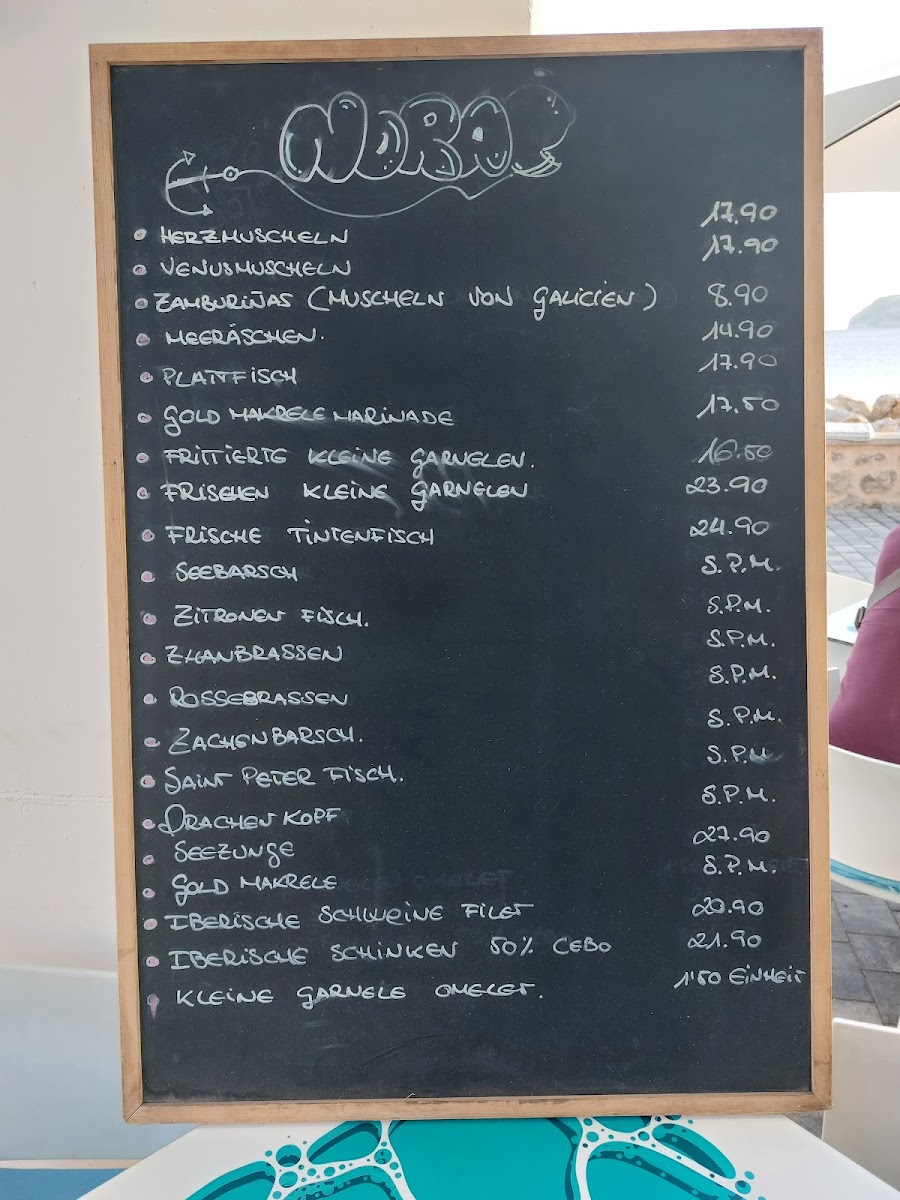 NORAP
HERZMUSCHELN 17.90
VENUSMUSCHELN 17.90
ZAMBURIÑAS (MUSCHELN VON GALICIEN) 8.90
MEERÄSCHEN. 14.90
PLATTFISCH 17.90
GOLD MAKRELE MARINADE 17.50
FRITTIERTE KLEINE GARNELEN. 16.50
FRISCHEN KLEINE GARNELEN 23.90
FRISCHE TINTENFISCH 24.90
SEEBARSCH S.P.M.
ZITRONEN FISCH. S.P.M.
ZHANBRASSEN S.P.M.
ROSSEBRASSEN S.P.M.
ZACHENBARSCH. S.P.M.
SAINT PETER FISCH. S.P.M
DRACHENKOPF S.P.M.
SEEZUNGE 27.90
GOLD MAKRELE S.P.M.
IBERISCHE SCHWEINE FILET 20.90
IBERISCHE SCHINKEN 50% CEBO 21.90
KLEINE GARNELE OMELET. 1'50 EINHEIT